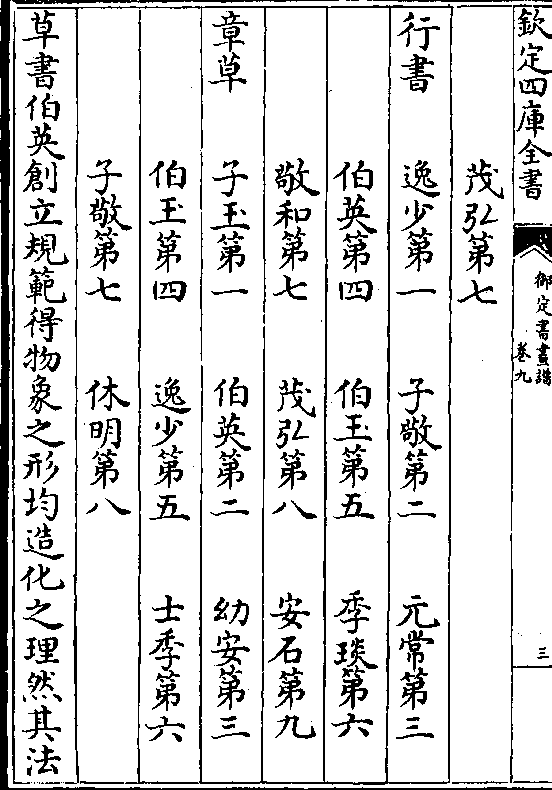 欽定四庫全書
御定書畫譜
卷九
三
茂弘第七
行書 逸少第一 子敬第二 元常第三
伯英第四 伯玉第五 季琰第六
敬和第七 茂弘第八 安石第九
章草 子玉第一 伯英第二 幼安第三
伯玉第四 逸少第五 士季第六
子敬第七 休明第八
草書伯英創立規範得物象之形均造化之理然其法